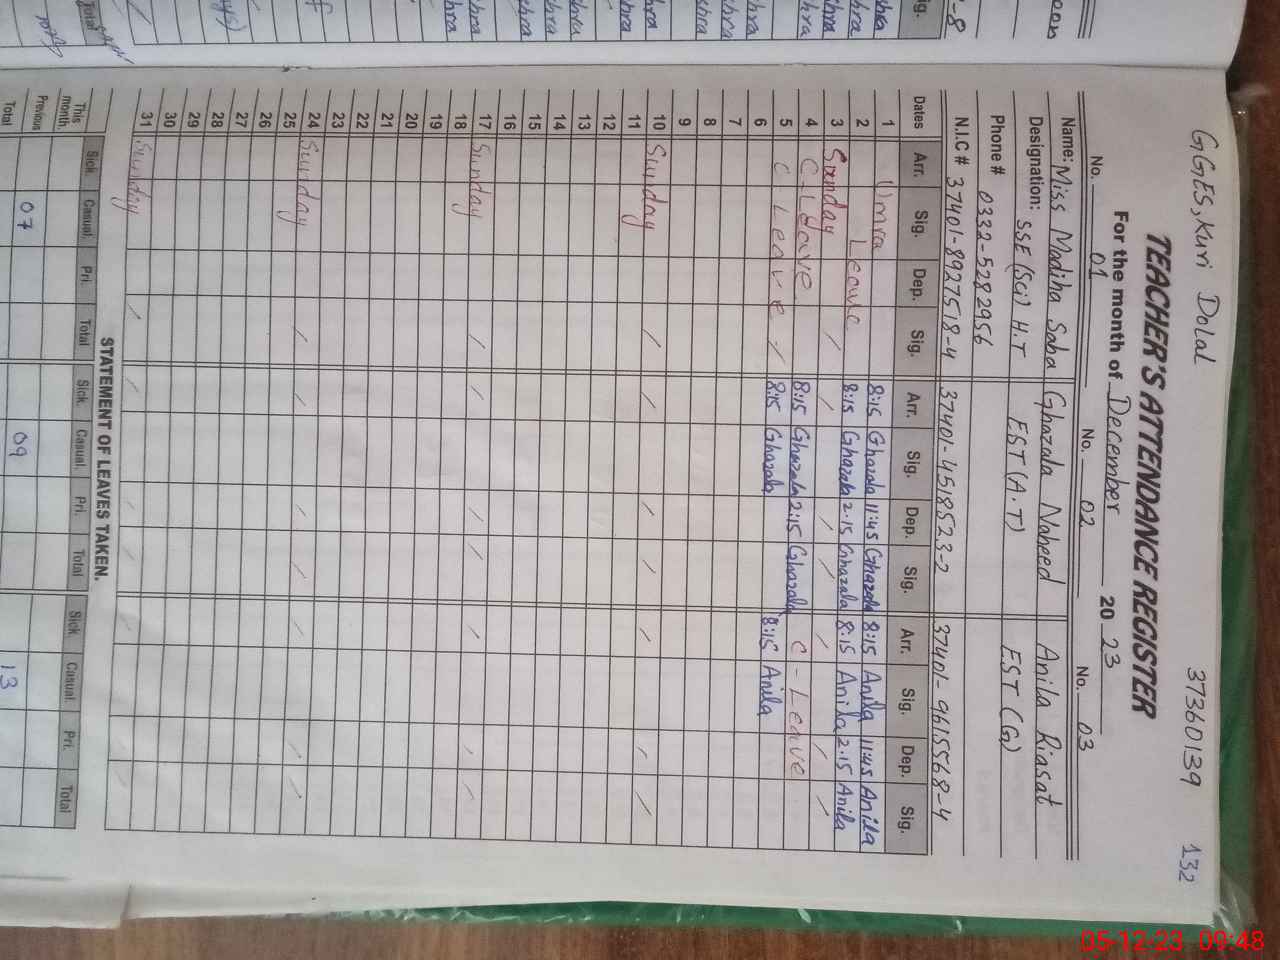 GGES, Kuri Dolal 37360139 132
TEACHER'S ATTENDANCE REGISTER
For the month of December 20 23
No. 01 No. 02 No. 03
Name: Miss Madiha Saba Ghazala Naheed Anila Riasat
Designation: SSE (Sci) H.T EST (A.T) EST (G)
Phone # 0332-5282956
N.I.C # 37401-8927518-4 37401-4518523-2 37401-9615568-4
Dates Arr. Sig. Dep. Sig. Arr. Sig. Dep. Sig. Arr. Sig. Dep. Sig.
1 Umra Leave 8:15 Ghazala 11:45 Ghazala 8:15 Anila 11:45 Anila
2 8:15 Ghazala 2.15 Ghazala 8:15 Anila 2.15 Anila
3 Sunday
4 C-Leave 8:15 Ghazala 2:15 Ghazala C-Leave
5 C-Leave 8:15 Ghazala 8:15 Anila
6
7
8
9
10 Sunday
11
12
13
14
15
16
17 Sunday
18
19
20
21
22
23
24 Sunday
25
26
27
28
29
30
31 Sunday
STATEMENT OF LEAVES TAKEN.
This month. Sick. Casual. Pri. Total Sick. Casual. Pri. Total Sick. Casual. Pri. Total
Previous 07 09 13
Total
05-12-23 09:48